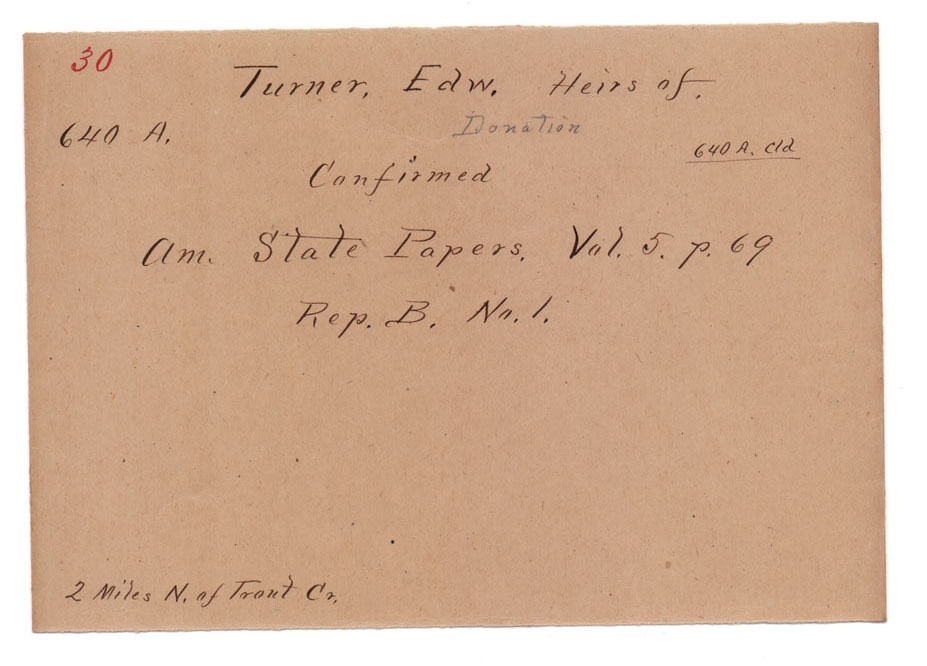 30
Turner, Edw. Heirs of.
640 A.
Donation
640 A. cld
Confirmed
Am. State Papers, Vol. 5. p. 69
Rep. B. No. 1.
2 Miles N. of Trout Cr.